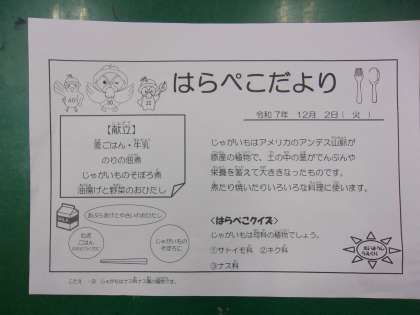 はらぺこだより
令和7年 12月 2日( 火 )
【献立】
麦ごはん・牛乳
のりの佃煮
じゃがいものそぼろ煮
油揚げと野菜のおひたし
じゃがいもはアメリカのアンデス山脈が
原産の植物で、土の中の茎がでんぷんや
栄養を蓄えて大きくなったものです。
煮たり焼いたりいろいろな料理に使います。
あぶらあげとやさいのおひたし
ごはん
じゃがいもの
そぼろに
<はらぺこクイズ>
じゃがいもは何科の植物でしょう。
①サトイモ科 ②キク科
③ナス科
こたえ ③ じゃがいもはナス科ナス属の植物です。